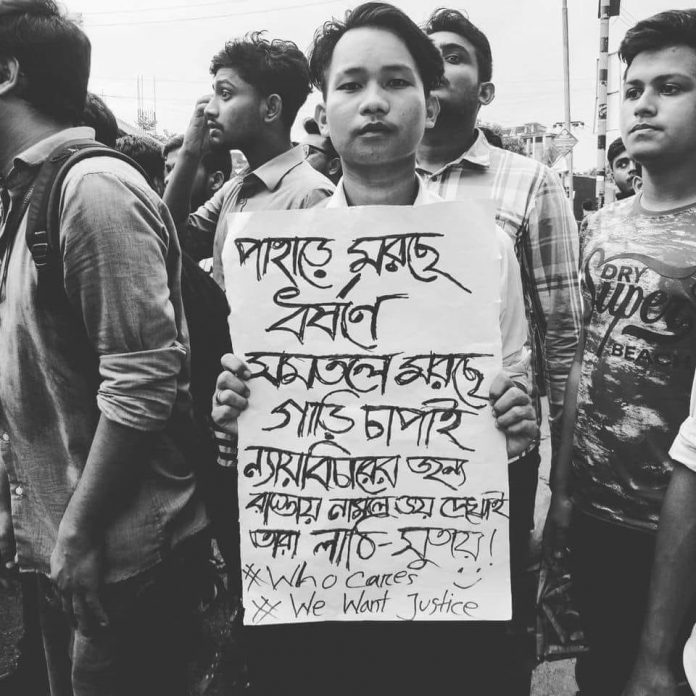 পাহাড়ে মরছে
ধর্ষণে
সমতলে মরছে
গাড়ি চাপাই
ন্যায়বিচারের জন্য
রাস্তায় নামলে ভয় দেখাই
তারা লাঠি-সুতায়!
#Who cares
# We Want Justice
DRY
Super
BEACH